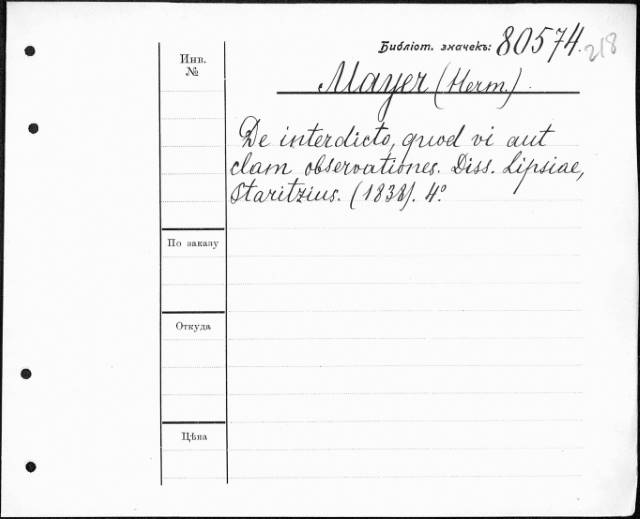 Библіот. значекъ: 80574. 218
Инв. №
Mayer (Herm.).
De interdicto, quod vi aut
clam observationes. Diss. Lipsiae,
Staritzius. (1838). 4°.
По заказу
Откуда
Цѣна